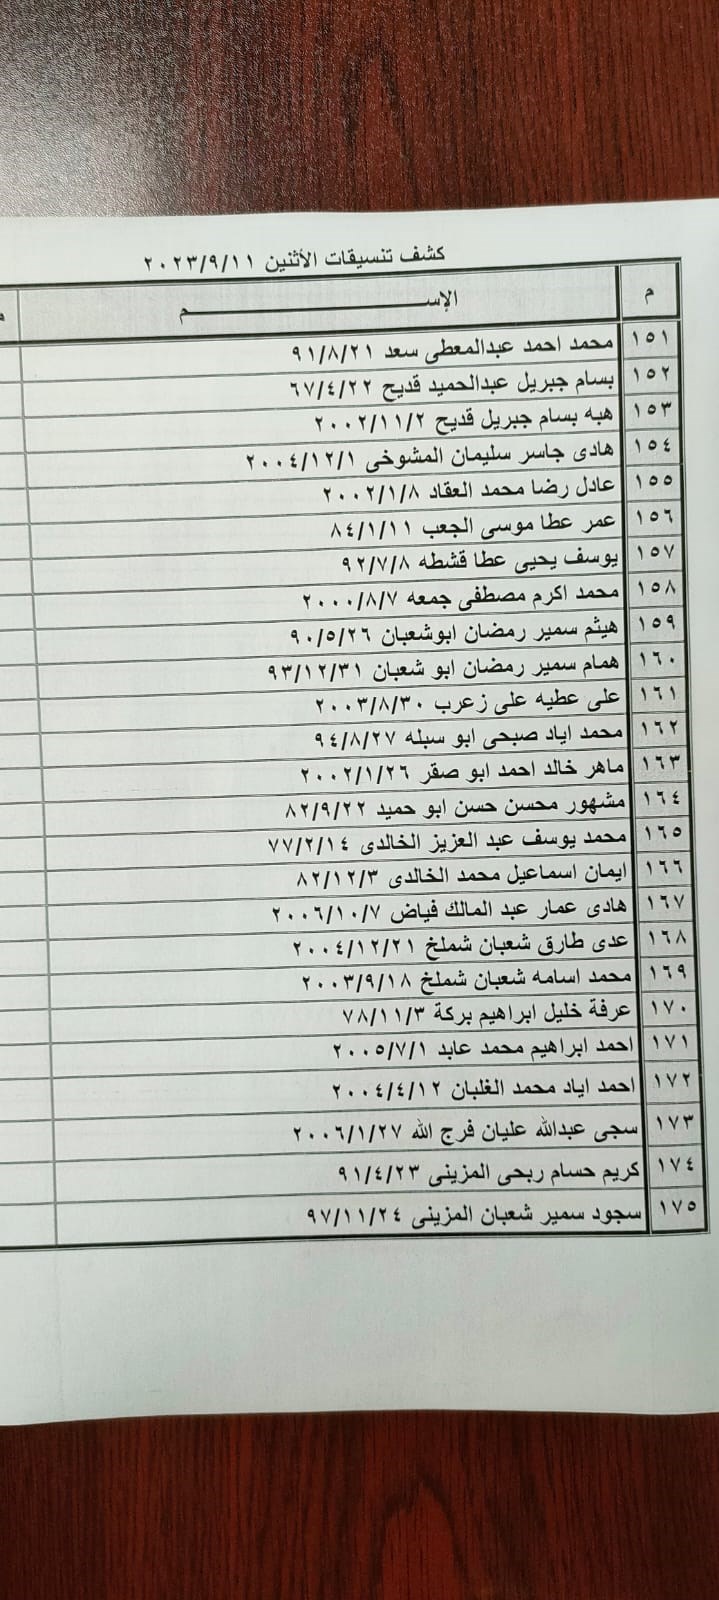 كشف تنسيقات الأثنين ٢٠٢٣/٩/١١
م الإســـــــــــــم
١٥١ محمد احمد عبدالمعطى سعد ٩١/٨/٢١
١٥٢ بسام جبريل عبدالحميد قديح ٦٧/٤/٢٢
١٥٣ هبه بسام جبريل قديح ٢٠٠٢/١١/٢
١٥٤ هادى جاسر سليمان المشوخى ٢٠٠٤/١٢/١
١٥٥ عادل رضا محمد العقاد ٢٠٠٢/١/٨
١٥٦ عمر عطا موسى الجعب ٨٤/١/١١
١٥٧ يوسف يحيى عطا قشطه ٩٢/٧/٨
١٥٨ محمد اكرم مصطفى جمعه ٢٠٠٠/٨/٧
١٥٩ هيثم سمير رمضان ابوشعبان ٩٠/٥/٢٦
١٦٠ همام سمير رمضان ابو شعبان ٩٣/١٢/٣١
١٦١ على عطيه على زعرب ٢٠٠٣/٨/٣٠
١٦٢ محمد اياد صبحى ابو سبله ٩٤/٨/٢٧
١٦٣ ماهر خالد احمد ابو صقر ٢٠٠٢/١/٢٦
١٦٤ مشهور محسن حسن ابو حميد ٨٢/٩/٢٢
١٦٥ محمد يوسف عبد العزيز الخالدى ٧٧/٢/١٤
١٦٦ ايمان اسماعيل محمد الخالدى ٨٢/١٢/٣
١٦٧ هادى عمار عبد المالك فياض ٢٠٠٦/١٠/٧
١٦٨ عدى طارق شعبان شملخ ٢٠٠٤/١٢/٢١
١٦٩ محمد اسامه شعبان شملخ ٢٠٠٣/٩/١٨
١٧٠ عرفة خليل ابراهيم بركة ٧٨/١١/٣
١٧١ احمد ابراهيم محمد عابد ٢٠٠٥/٧/١
١٧٢ احمد اياد محمد الغلبان ٢٠٠٤/٤/١٢
١٧٣ سجى عبدالله عليان فرج الله ٢٠٠٦/١/٢٧
١٧٤ كريم حسام ربحى المزينى ٩١/٤/٢٣
١٧٥ سجود سمير شعبان المزينى ٩٧/١١/٢٤